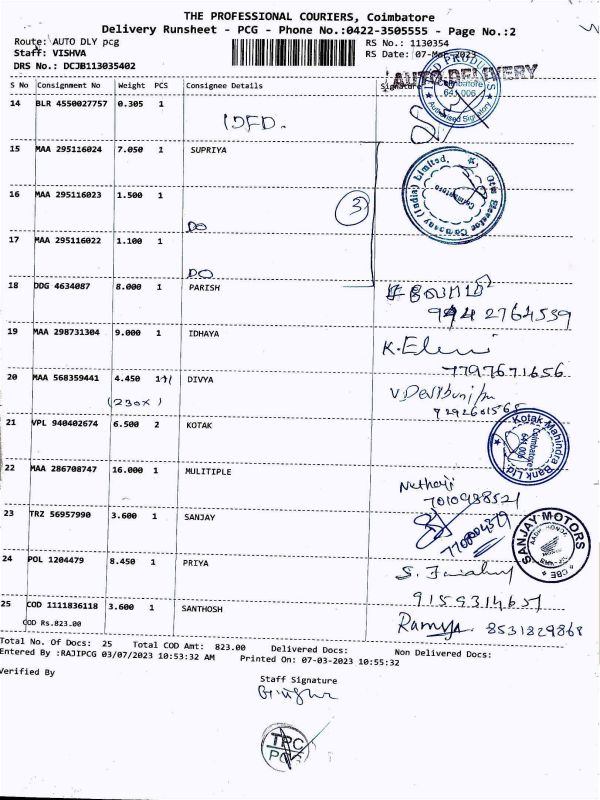 THE PROFESSIONAL COURIERS, Coimbatore
Delivery Runsheet - PCG - Phone No.:0422-3505555 - Page No.:2
Route: AUTO DLY pcg
RS No.: 1130354
Staff: VISHVA
RS Date: 07-Mar-2023
DRS No.: DCJB113035402
AUTO DELIVERY
S No Consignment No Weight PCS Consignee Details Signature
14 BLR 4550027757 0.305 1
IDFD.
Coimbatore 641 006 Authorised Signatory
15 MAA 295116024 7.050 1 SUPRIYA
Otis Elevator Company (India) Limited. Coimbatore
16 MAA 295116023 1.500 1
3
DO
17 MAA 295116022 1.100 1
DO
18 DDG 4634087 8.000 1 PARISH
9442764539
19 MAA 298731304 9.000 1 IDHAYA
K. Eleni
7797671656
20 MAA 568359441 4.450 1 DIVYA
(230x)
7292601568
21 VPL 940402674 6.500 2 KOTAK
Kotak Mahindra Bank Ltd Coimbatore 641 006
22 MAA 286708747 16.000 1 MULITIPLE
7010988521
23 TRZ 56957990 3.600 1 SANJAY
SANJAY MOTORS HONDA CBE
24 POL 1204479 8.450 1 PRIYA
9159314657
25 COD 1111836118 3.600 1 SANTHOSH
COD Rs.823.00
Ramya 8531829868
Total No. Of Docs: 25 Total COD Amt: 823.00 Delivered Docs: Non Delivered Docs:
Entered By :RAJIPCG 03/07/2023 10:53:32 AM Printed On: 07-03-2023 10:55:32
Verified By
Staff Signature
TPC
PCG